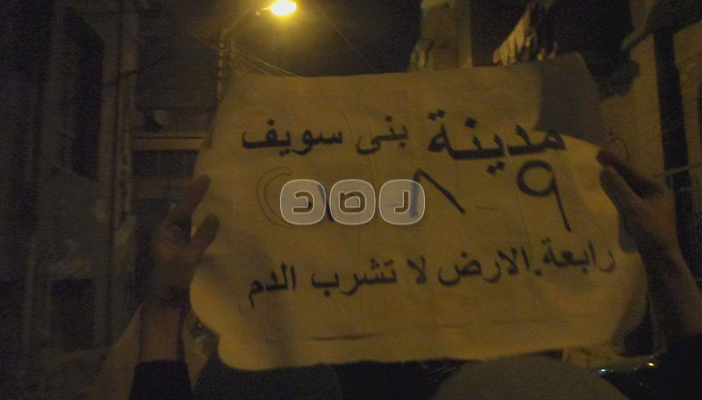 مدينة بنى سويف
٩ - ٨ -
رابعة.الارض لا تشرب الدم
رصد